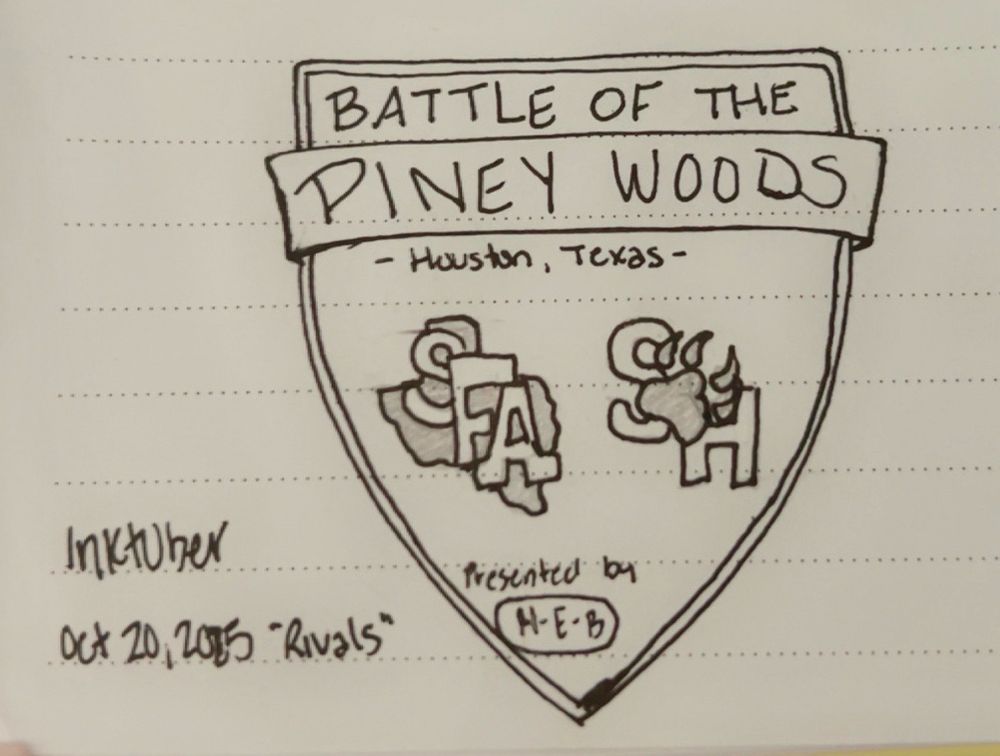 BATTLE OF THE
PINEY WOODS
- Houston, Texas -
SFA SH
Presented by
H-E-B
Inktober
Oct 20, 2025 "Rivals"